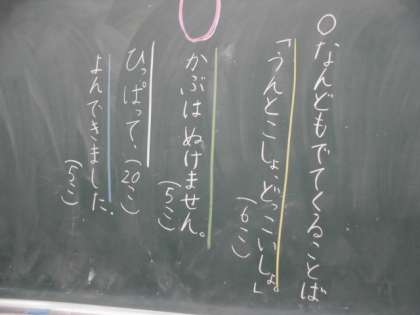 ○なんどもでてくることば
「うんとこしょ、どっこいしょ。」
(6こ)
かぶはぬけません。
(5こ)
ひっぱって、(20こ)
よんできました。
(5こ)